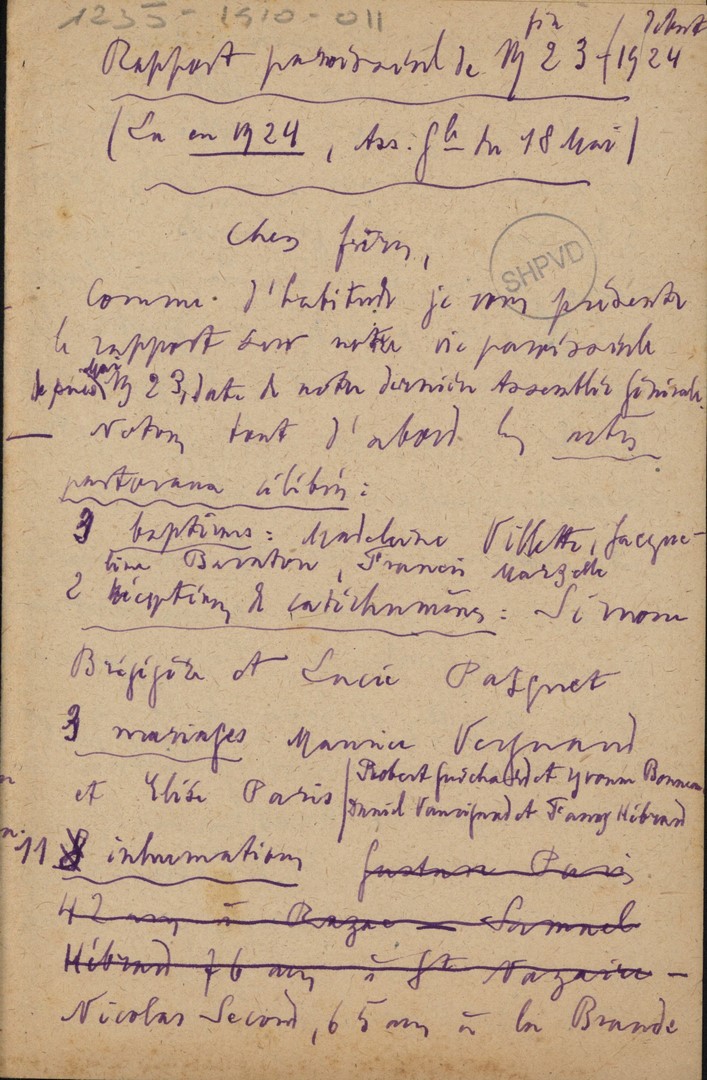 1235-1910-011
Rapport paroissial de fin 1923-(début 1924
(Lu en 1924, Ass. Gle du 18 Mai)
SHPVD
Chers frères,
Comme d'habitude je vous présente
le rapport sur notre vie paroissiale
depuis Mai 1923, date de notre dernière Assemblée Générale.
Notons tout d'abord les actes
pastoraux célébrés :
3 baptêmes : Madeleine Villette, Jacque-
line Baraton, Francis Marzelle
2 réceptions de catéchumènes : Simone
Brégigéon et Lucie Pasquet
3 mariages Maurice Vergnaud
et Elise Paris / Robert Guichard et Yvonne Bonneau
Daniel Vauvignard et Fanny Hébrard
11 inhumations Gustave Paris
42 ans à Razac — Samuel
Hébrard 76 ans à St Nazaire -
Nicolas Second, 65 ans à la Brande